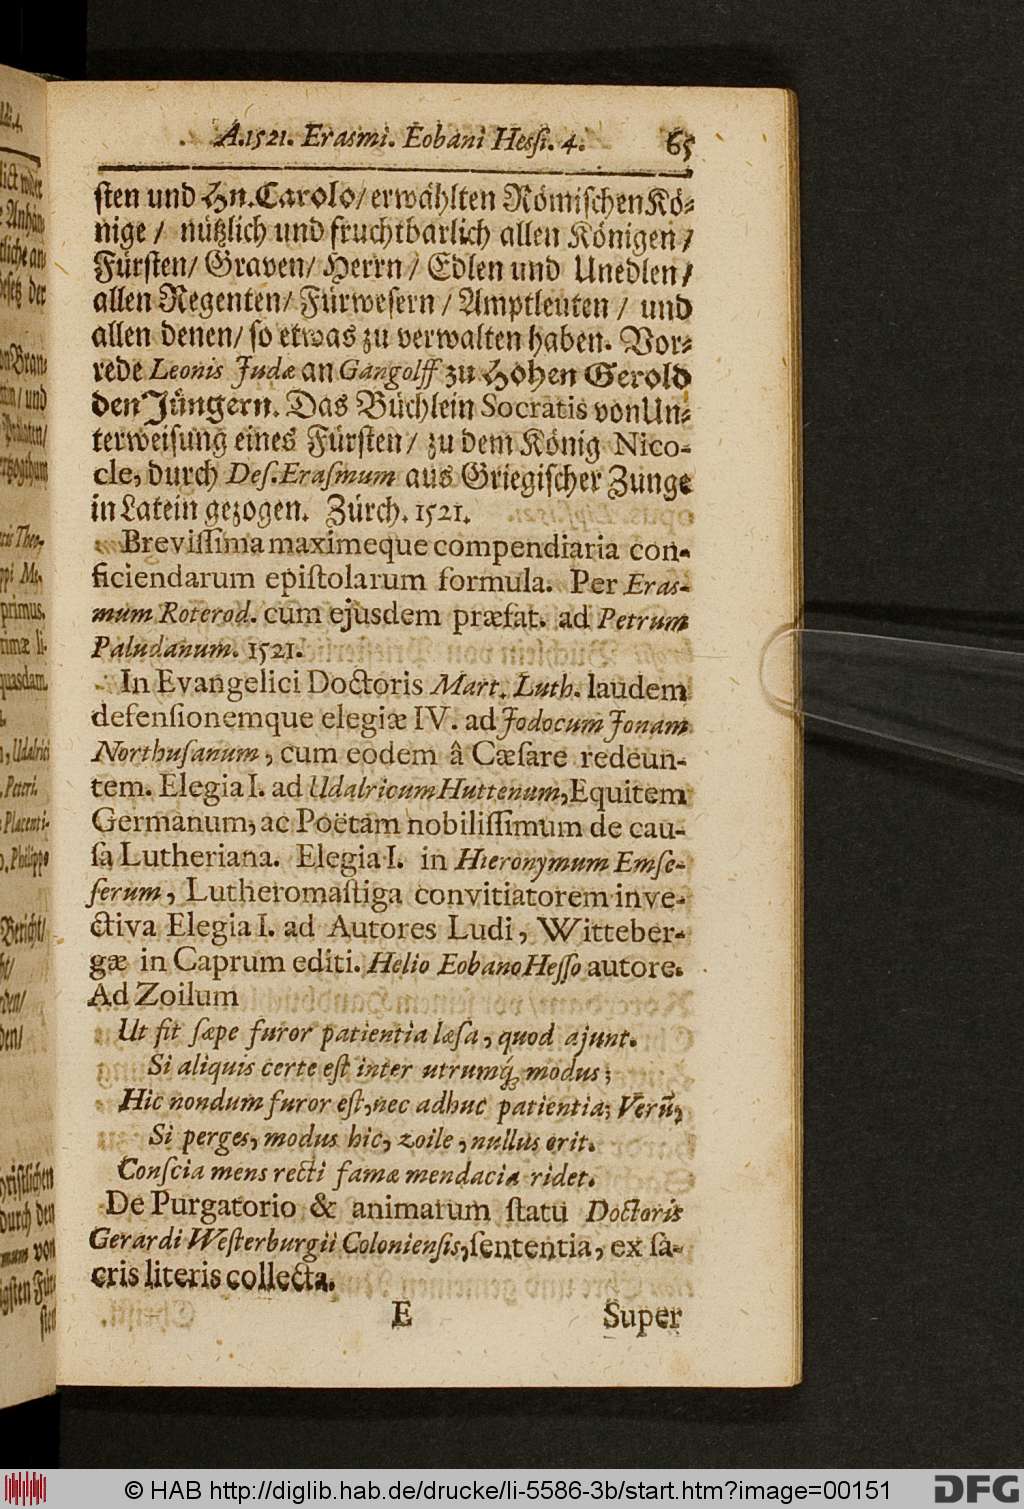 A.1521. Erasmi. Eobani Hessi. 4. 65
sten und Hn. Carolo/ erwählten Römischen Kö-
nige / nützlich und fruchtbarlich allen Königen /
Fürsten/ Graven/ Herrn / Edlen und Unedlen /
allen Regenten/ Fürwesern / Amptleuten / und
allen denen/ so etwas zu verwalten haben. Vor-
rede Leonis Judæ an Gangolff zu Hohen Gerold
den Jüngern. Das Büchlein Socratis von Un-
terweisung eines Fürsten/ zu dem König Nico-
cle, durch Des. Erasmum aus Griegischer Zunge
in Latein gezogen. Zürch. 1521.
Brevissima maximeque compendiaria con-
ficiendarum epistolarum formula. Per Eras-
mum Roterod. cum ejusdem præfat. ad Petrum
Paludanum. 1521.
In Evangelici Doctoris Mart. Luth. laudem
defensionemque elegiæ IV. ad Jodocum Jonam
Northusanum, cum eodem â Cæsare redeun-
tem. Elegia I. ad Udalricum Huttenum, Equitem
Germanum, ac Poëtam nobilissimum de cau-
sa Lutheriana. Elegia I. in Hieronymum Emse-
ferum, Lutheromastiga convitiatorem inve-
ctiva Elegia I. ad Autores Ludi, Witteber-
gæ in Caprum editi. Helio Eobano Hesso autore.
Ad Zoilum
Ut fit sæpe furor patientia læsa, quod ajunt.
Si aliquis certe est inter utrumq́; modus;
Hic nondum furor est, nec adhuc patientia; Verũ,
Si perges, modus hic, zoile, nullus erit.
Conscia mens recti famæ mendacia ridet.
De Purgatorio & animarum statu Doctoris
Gerardi Westerburgii Coloniensis, sententia, ex sa-
cris literis collecta.
E Super
© HAB http://diglib.hab.de/drucke/li-5586-3b/start.htm?image=00151
DFG